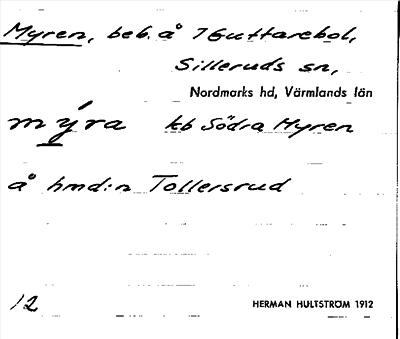 Myren, beb. å 1 Guttarebol,
Silleruds sn,
Nordmarks hd, Värmlands län
mýra kb Södra Myren
å hmd:n Tollersrud
12 HERMAN HULTSTRÖM 1912